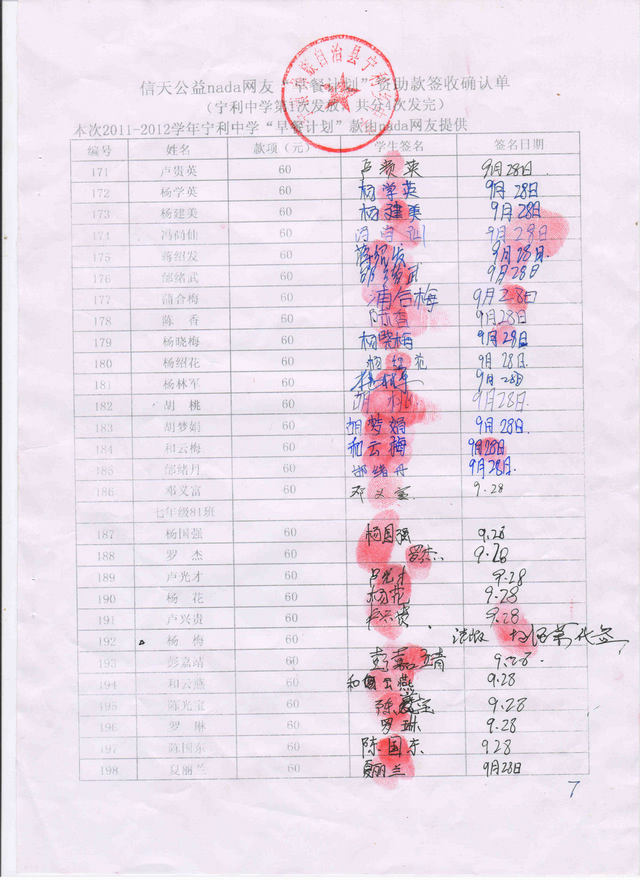 信天公益nada网友“早餐计划”资助款签收确认单
(宁利中学第1次发放，共分4次发完)
本次2011-2012学年宁利中学“早餐计划”款由nada网友提供
编号 姓名 款项（元） 学生签名 签名日期
171 卢贵英 60 卢贵英 9月28日
172 杨学英 60 杨学英 9月28日
173 杨建美 60 杨建美 9月28日
174 冯尚仙 60 9月29日
175 蒋绍发 60 蒋绍发 9月28日
176 邰绪武 60 9月28日
177 蒲合梅 60 蒲合梅 9月28日
178 陈 香 60 陈香 9月28日
179 杨晓梅 60 杨晓梅 9月29日
180 杨绍花 60 9月28日
181 杨林军 60 9月28日
182 胡 桃 60 胡 9月28日
183 胡梦娟 60 胡梦娟 9月28日
184 和云梅 60 和云梅 9月28日
185 邰绪丹 60 邰绪丹 9月28日
186 邓义富 60 邓义富 9.28
七年级81班
187 杨国强 60 杨国强 9.28
188 罗 杰 60 罗杰 9.28
189 卢光才 60 卢光才 9.28
190 杨 花 60 杨花 9.28
191 卢兴贵 60 卢兴贵 9.28
192 杨 梅 60 代签
193 彭嘉靖 60 彭嘉靖 9.28
194 和云燕 60 和云燕 9.28
195 陈光宝 60 陈 宝 9.28
196 罗 琳 60 罗琳 9.28
197 陈国东 60 陈国东 9 28
198 夏丽兰 60 夏丽兰 9月28日
7